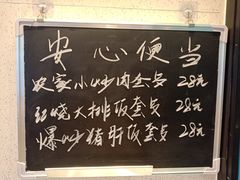 安心便当
农家小炒肉套餐 28元
红烧大排饭套餐 28元
爆炒猪肝饭套餐 28元